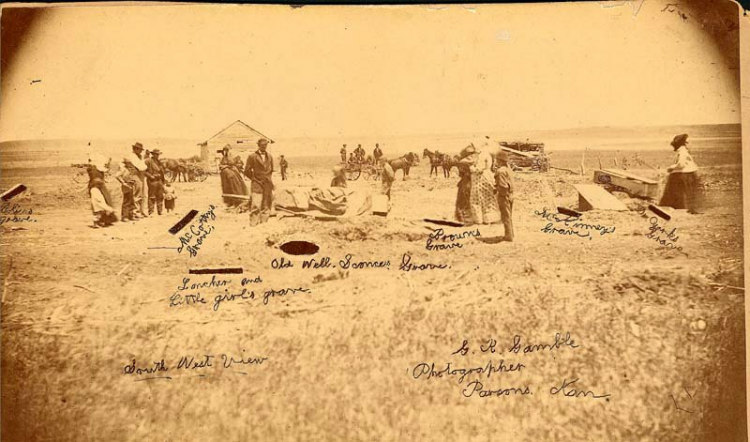 Grave.
McCrotty's
Grave.
Loncher and
Little girl's grave.
Old Well. Sconces Grave.
Browns
Grave
McKinney's
Grave.
Yorks
Grave
South West View
G. R. Gamble
Photographer
Parsons. Kan.